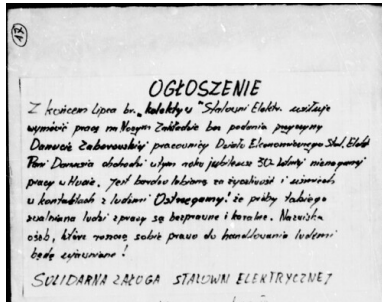 IX
1
OGŁOSZENIE
Z końcem Lipca br. "kolektyw" Stalowni Elektr. usiłuje
wymówić pracę na Naszym Zakładzie bez podania przyczyny
Danucie Zaborowskiej pracownicy Działu Ekonomicznego Stal. Elekt.
Pani Danusia obchodzi w tym roku jubileusz 30-letniej nienagannej
pracy w Hucie. Jest bardzo lubiana za życzliwość i uśmiech
w kontaktach z ludźmi Ostrzegamy: że próby takiego
zwalniania ludzi z pracy są bezprawne i karalne. Nazwiska
osób, które roszczą sobie prawo do handlowania ludźmi
będą ujawnione!
SOLIDARNA ZAŁOGA STALOWNI ELEKTRYCZNEJ